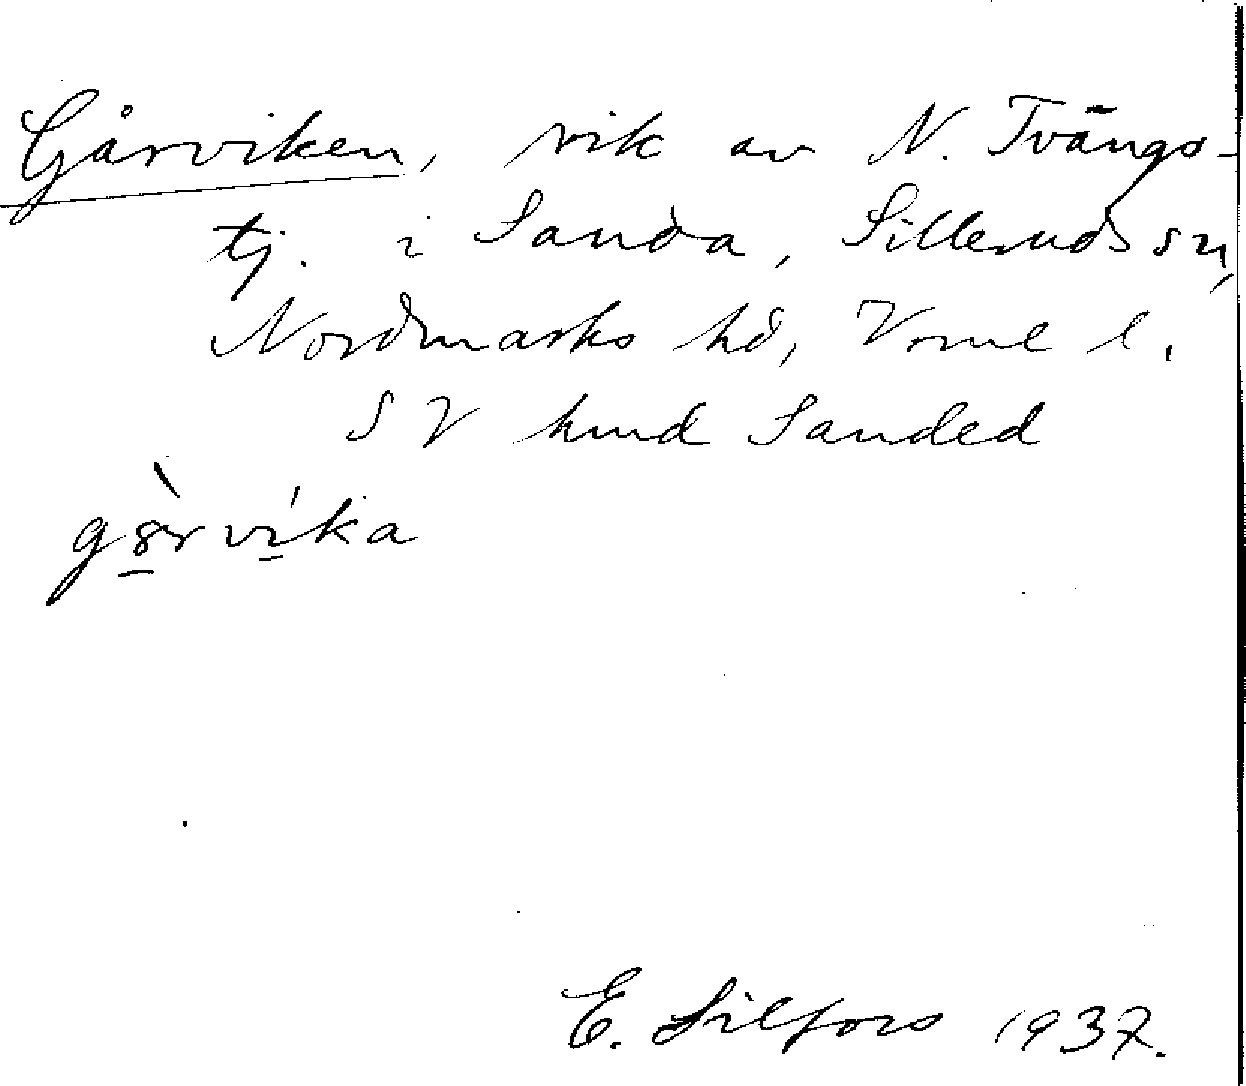 Gårviken, vik av N. Tvängs-
tj. i Sanda, Silleruds sn,
Nordmarks hd, Vrml l.
SV hmd Sanded
g8̀rvíka
E. Silfors 1937.